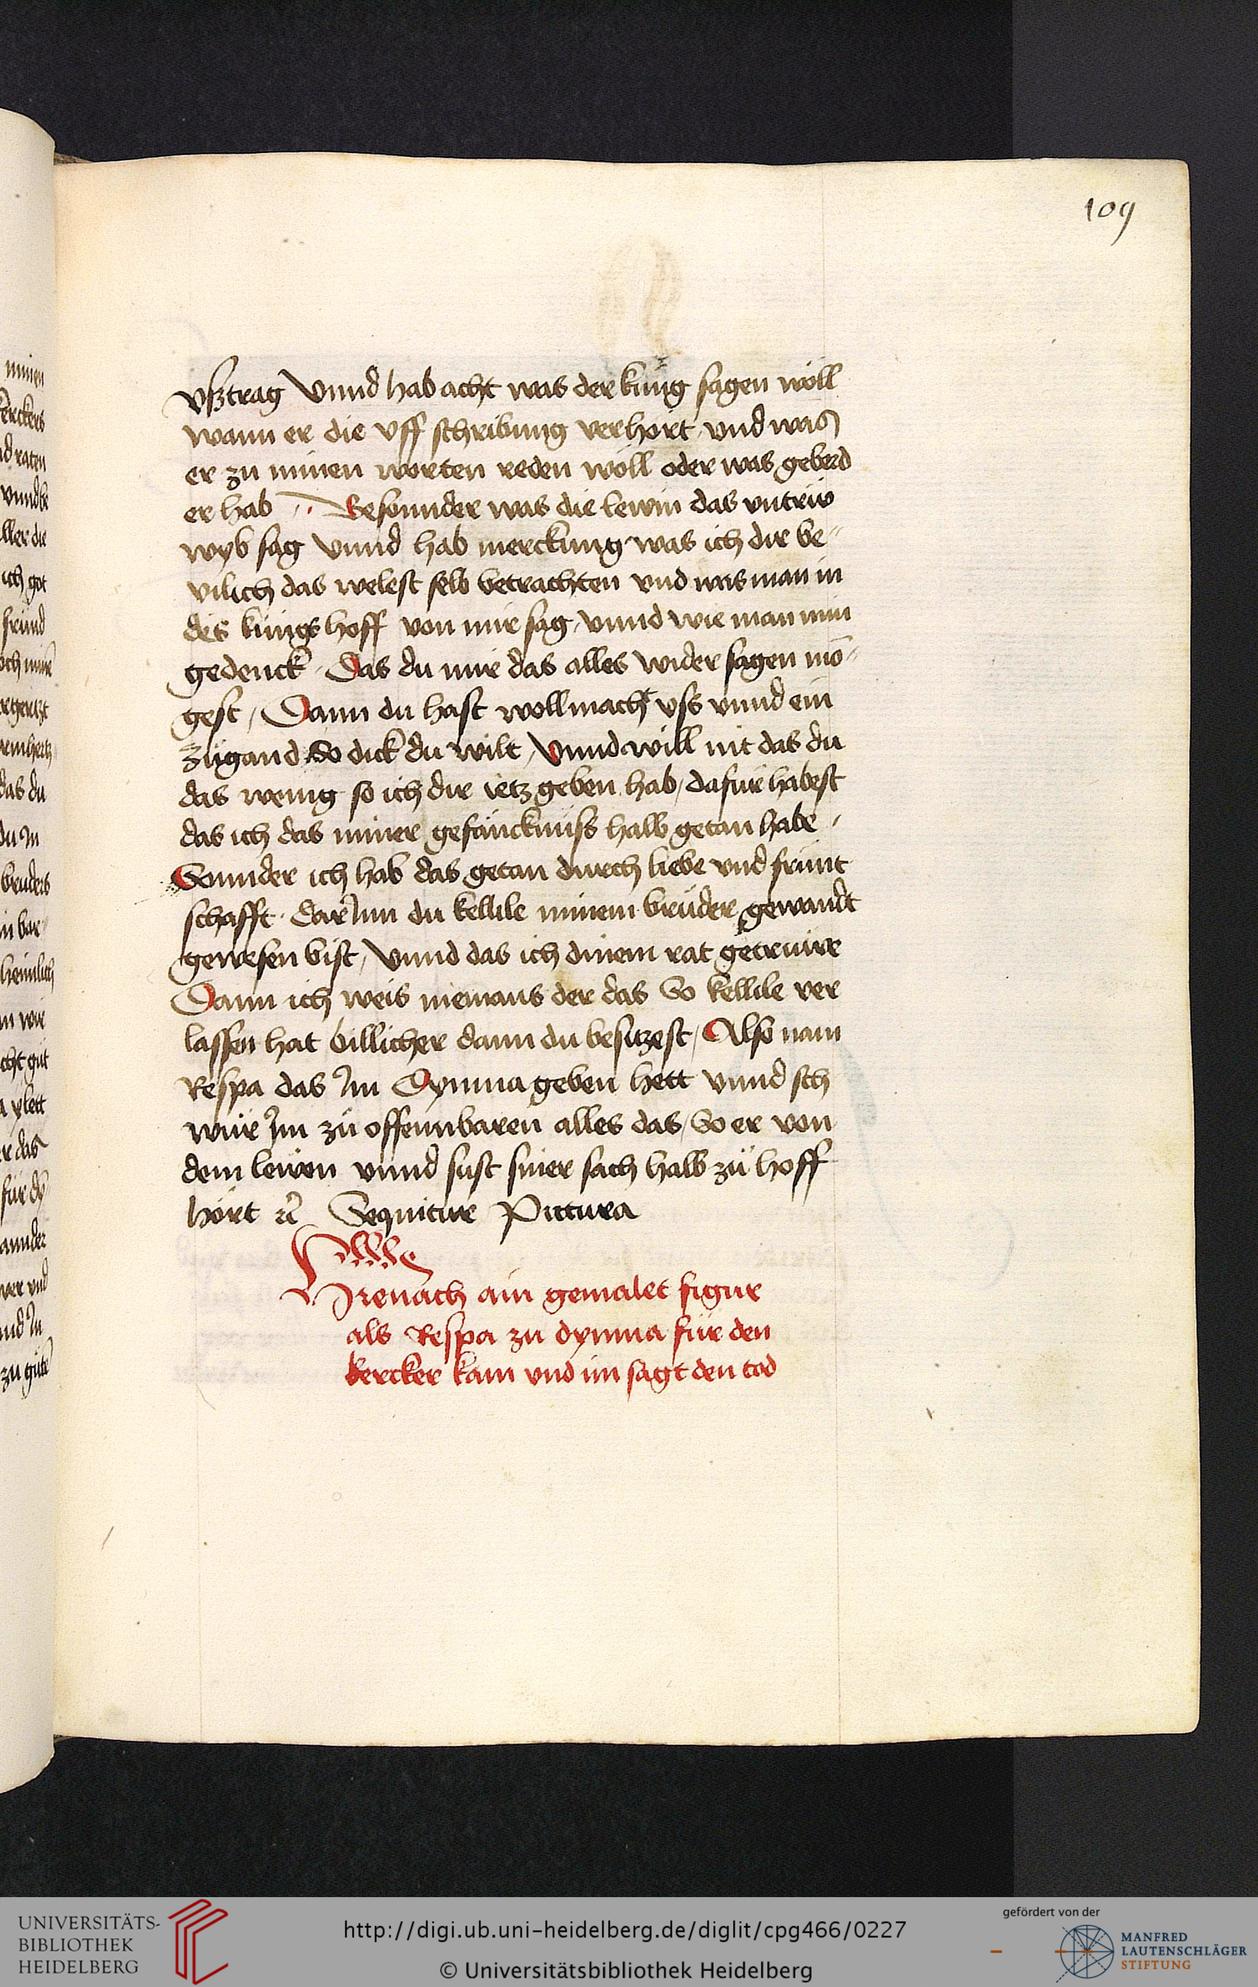 109
vßtrag Vnnd hab acht was der kúng sagen wöll
wann er die vff schribung verhört vnd was
er zu minen worten reden wöll oder was geberd
er hab Besonnder was die lewin das vntrúw
wyb sag Vnnd hab merckung was ich dir be-
vilich das welest selb betrachten vnd was man in
des kúngs hoff von mir sag vnnd wie man min
gedenck Das du mir das alles wider sagen mö-
gest / Dann du hast wollmacht vss vnnd ein
zügand So dick du wilt / Vnnd will nit das du
das wenig so ich dir ietz geben hab / dafúr habest
das ich das miner gefánckniss halb getan habe
Sonnder ich hab das getan durch liebe vnd frúnt
schafft Darjnn du kellile minem brúder gewandt
gewesen bist / Vnnd das ich dinem rat getruwe
Dann ich weis niemans der das So kellile ver
lassen hat billicher dann du besitzest / Also nam
Respa das Im Dymna geben hett vnnd sch
wúr Im zú offennbaren alles das / So er von
dem lewen vnnd sust siner sach halb zú hoff
hört ꝛc Sequitur Pictura
Hienach ain gemalet figur
als Respa zu dymna fúr den
kercker kam vnd im sagt den tod
UNIVERSITÄTS-
BIBLIOTHEK
HEIDELBERG
http://digi.ub.uni-heidelberg.de/diglit/cpg466/0227
© Universitätsbibliothek Heidelberg
gefördert von der
MANFRED
LAUTENSCHLÄGER
STIFTUNG